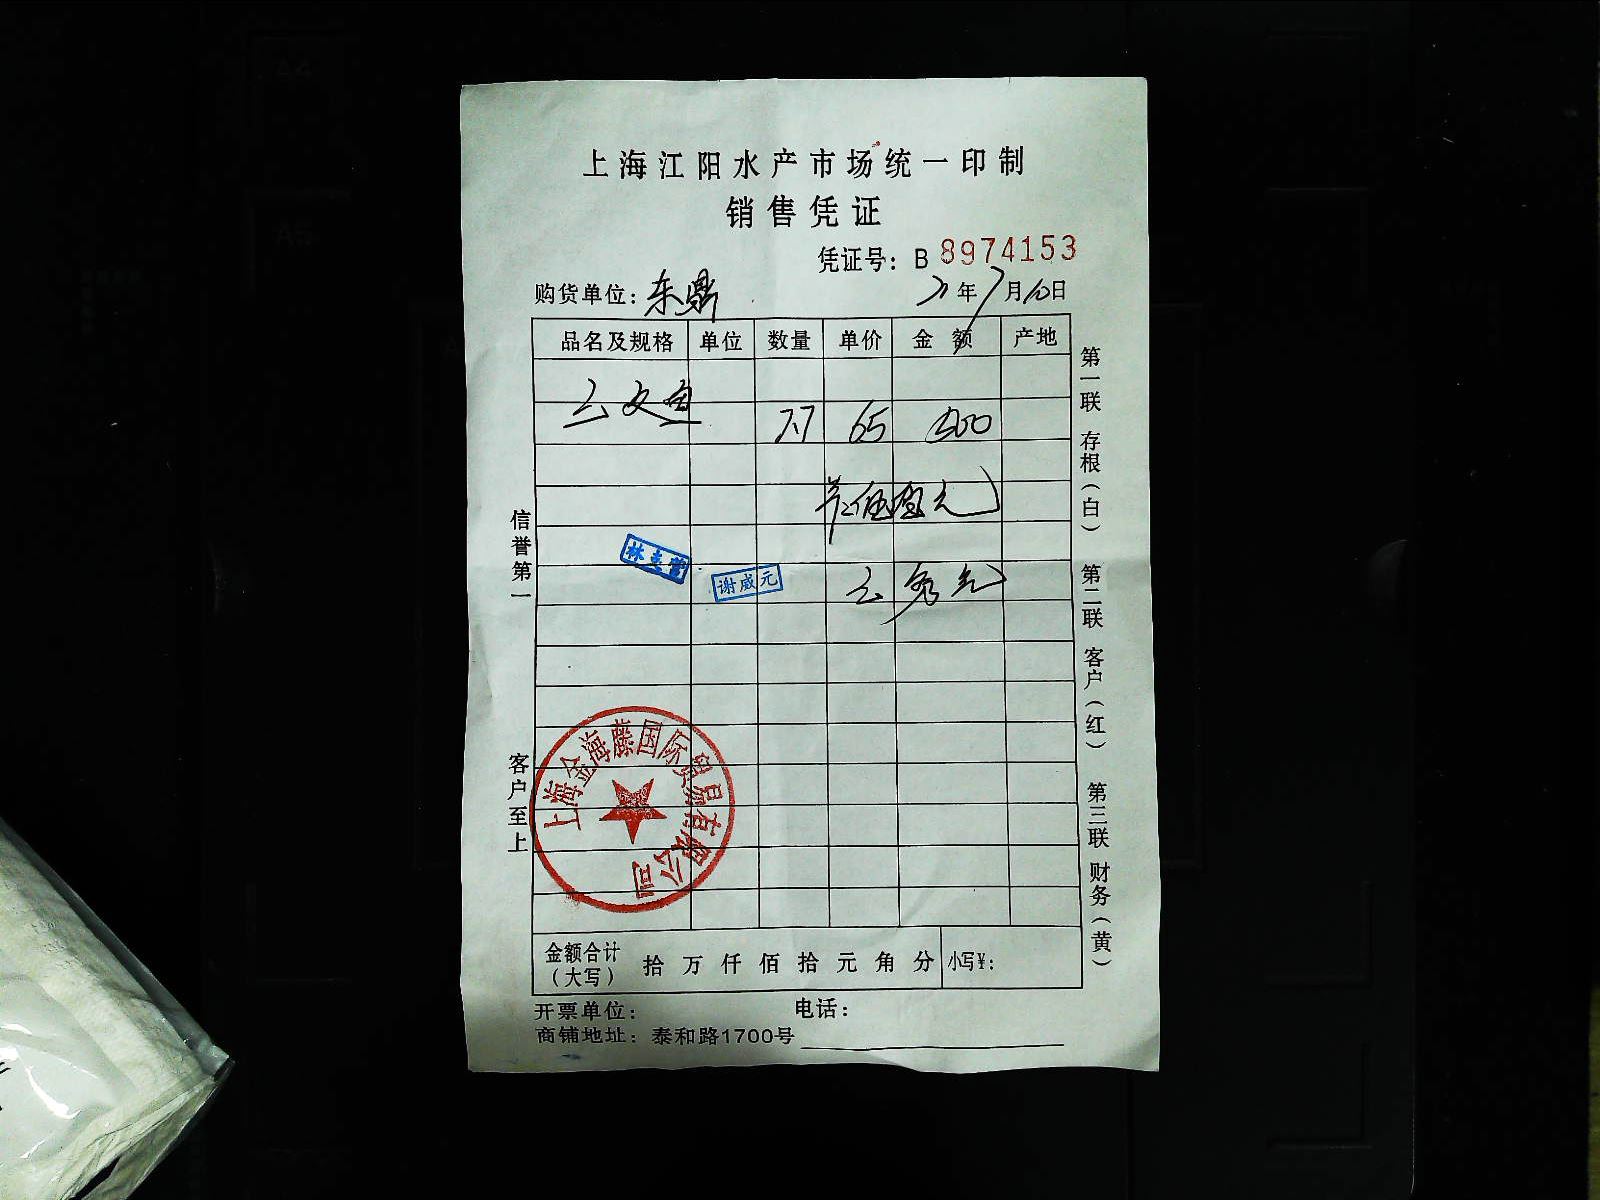 上海江阳水产市场统一印制
销售凭证
凭证号：B 8974153
购货单位：东鼎
21年7月10日
品名及规格 单位 数量 单价 金额 产地
三文鱼 7.7 65 500
伍佰元
林志营
谢威元
上海金海藤国际贸易有限公司
信誉第一
客户至上
第一联 存根（白） 第二联 客户（红） 第三联 财务（黄）
金额合计（大写） 拾 万 仟 佰 拾 元 角 分 小写¥：
开票单位： 电话：
商铺地址：泰和路1700号